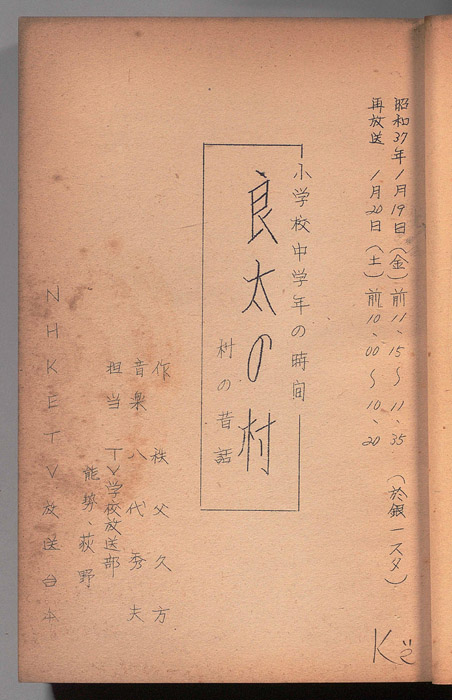 昭和37年1月19日(金)前11、15〜11、35(於銀一スタ)
再放送 1月20日(土)前10、00〜10、20
小学校中学年の時間
良太の村
村の昔話
作 秩父久方
音楽 八代秀夫
担当 TV学校放送部
能勢、荻野
NHKETV放送台本
K